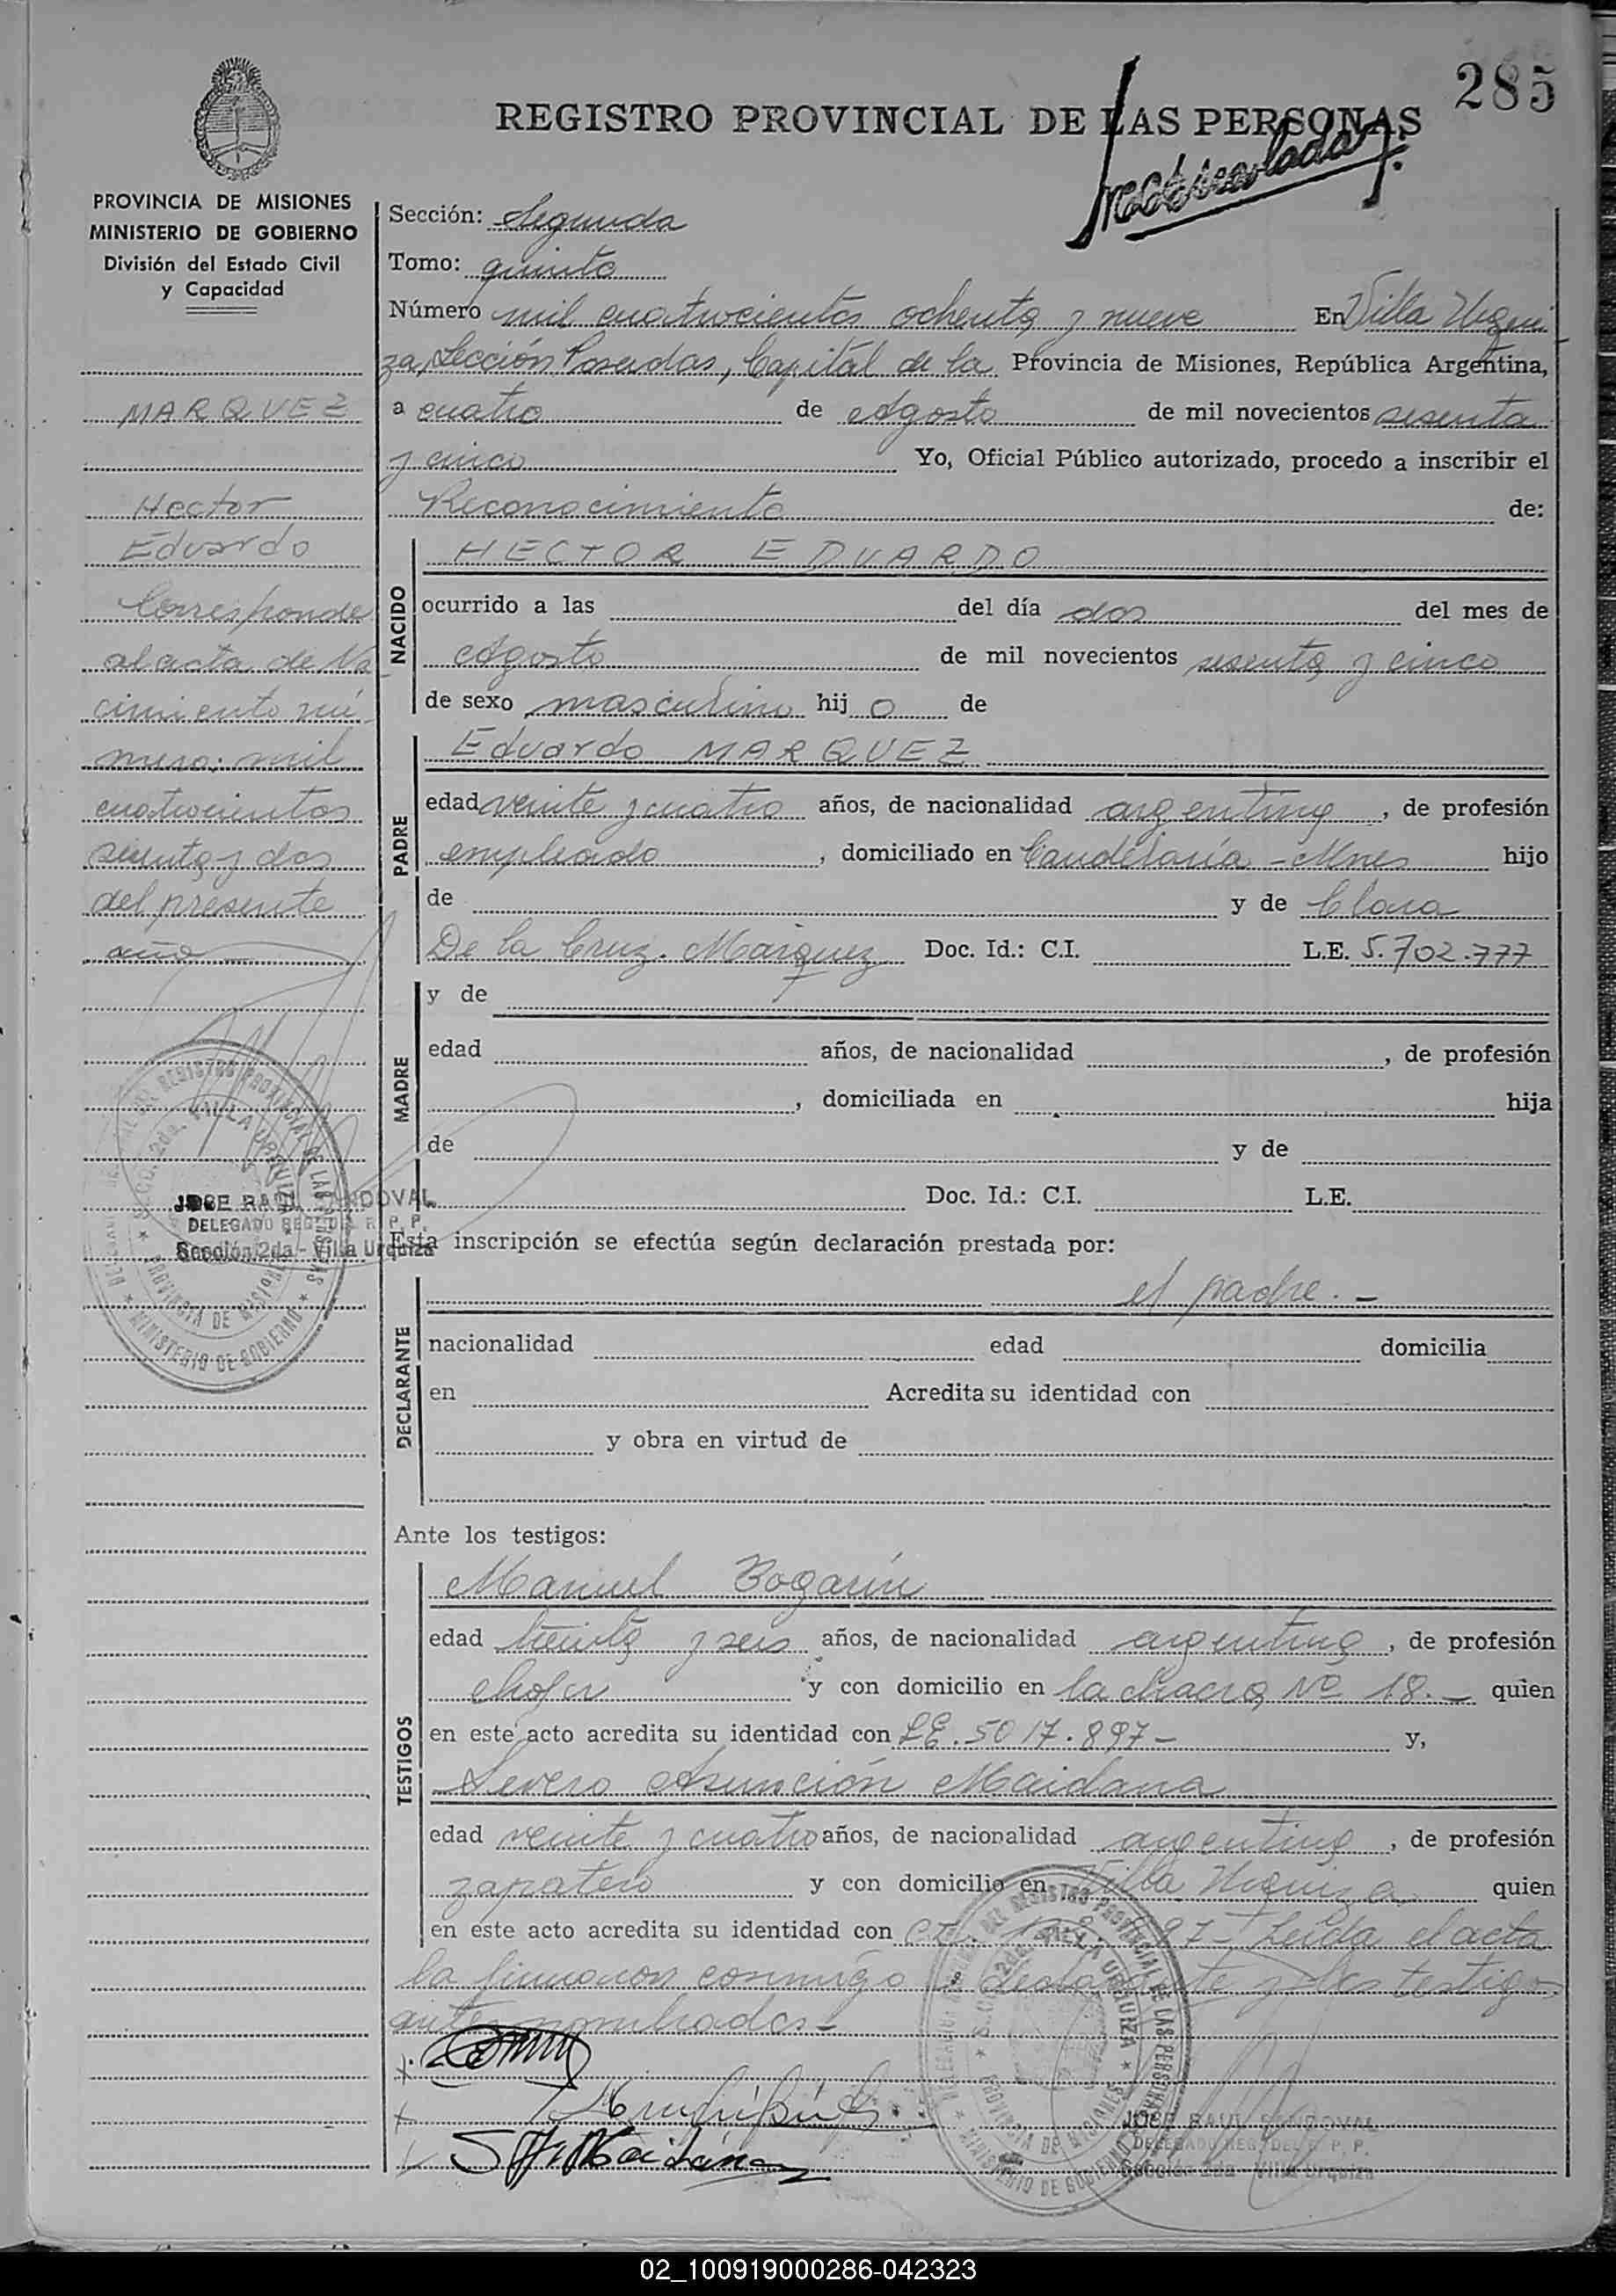 285
REGISTRO PROVINCIAL DE LAS PERSONAS
PROVINCIA DE MISIONES
MINISTERIO DE GOBIERNO
División del Estado Civil
y Capacidad
MARQUEZ
Hector
Eduardo
Corresponde
al acta de Na
cimiento nú
mero: mil
cuatrocientos
y dos
del presente
año
JOSE RAUL SANDOVAL
DELEGADO REG. DEL R. P. P.
Sección 2da - Villa Urquiza
Sección: Segunda
Tomo: quinto
Número mil cuatrocientos ochenta y nueve En Villa Urqui
za, Sección Posadas, Capital de la Provincia de Misiones, República Argentina,
a cuatro de Agosto de mil novecientos sesenta
y cinco Yo, Oficial Público autorizado, procedo a inscribir el
Reconocimiento de:
NACIDO
HECTOR EDUARDO
ocurrido a las del día dos del mes de
Agosto de mil novecientos sesenta y cinco
de sexo masculino hij o de
PADRE
Eduardo MARQUEZ
edad veinte y cuatro años, de nacionalidad argentina, de profesión
empleado, domiciliado en Candelaria - Mnes hijo
de y de Clara
De la Cruz Marquez Doc. Id.: C.I. L.E. 5.702.777
MADRE
y de
edad años, de nacionalidad , de profesión
, domiciliada en hija
de y de
Doc. Id.: C.I. L.E.
Esta inscripción se efectúa según declaración prestada por:
DECLARANTE
el padre. -
nacionalidad edad domicilia
en Acredita su identidad con
y obra en virtud de
Ante los testigos:
TESTIGOS
Manuel Bogarín
edad treinta y seis años, de nacionalidad argentina, de profesión
chofer y con domicilio en la chacra Nº 18. - quien
en este acto acredita su identidad con LE. 5017.897 - y,
Severo Asunción Maidana
edad veinte y cuatro años, de nacionalidad argentina, de profesión
zapatero y con domicilio en Villa Urquiza quien
en este acto acredita su identidad con Leída el acta
la firmaron conmigo declarante y los testigos
antes nombrados -
JOSE RAUL SANDOVAL
DELEGADO REG. DEL R. P. P.
Sección 2da - Villa Urquiza
02_100919000286-042323